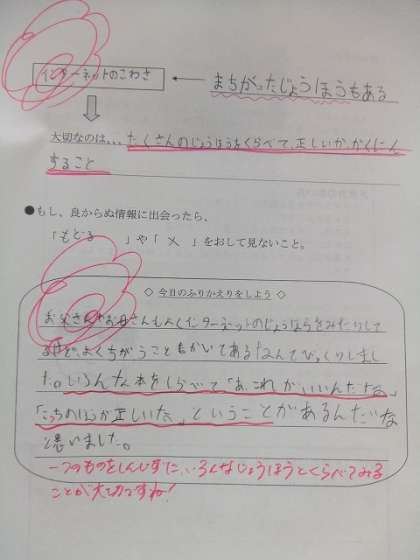 インターネットのこわさ ← まちがったじょうほうもある
大切なのは…たくさんのじょうほうをくらべて、正しいか、かくにん
すること
●もし、良からぬ情報に出会ったら、
「もどる 」や「 × 」をおして見ないこと。
◇ 今日のふりかえりをしよう ◇
お父さんやお母さんもよくインターネットのじょうほうをみたりして
るけど、よくちがうこともかいてあるなんてびっくりしまし
た。いろんな本をしらべて「あ、これがいいんだな」
「こっちのほうが正しいな」ということがあるんだな
と思いました。
一つのものをしんじずに、いろんなじょうほうとくらべてみる
ことが大切ですね!